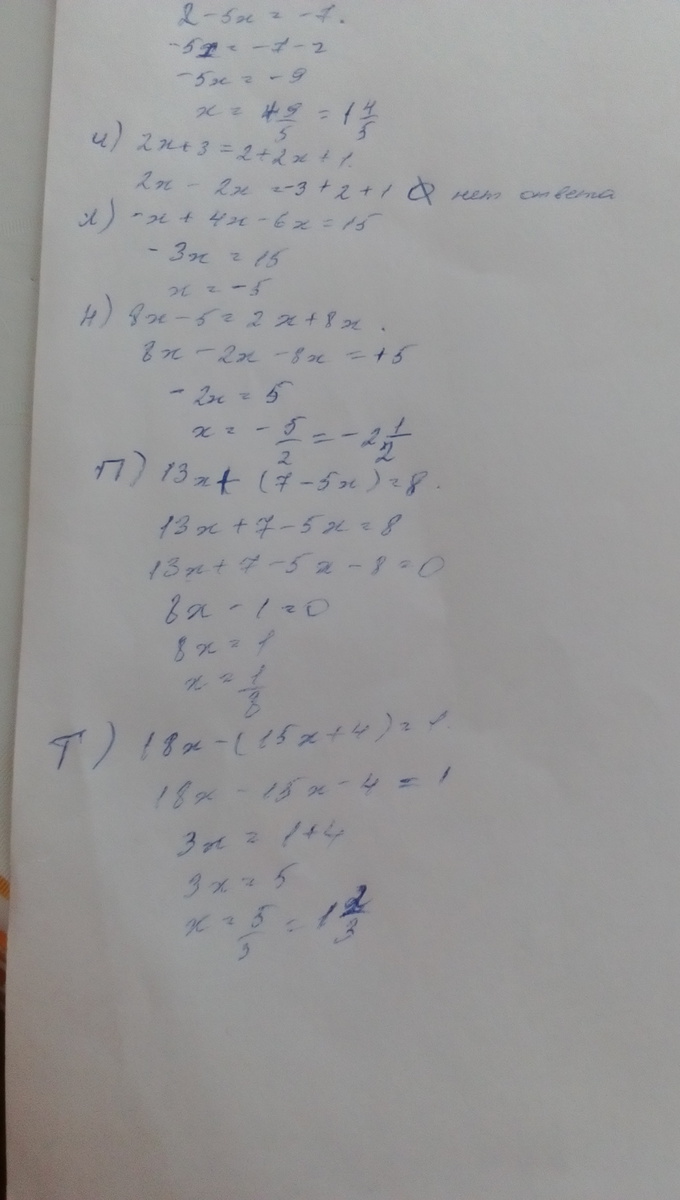 2-5x = -7.
-5x = -7-2
-5x = -9
x = +9/5 = 1 4/5
и) 2x+3=2+2x+1.
2x - 2x =-3+2+1 нет ответа
л) -x + 4x-6x=15
-3x = 15
x = -5
н) 8x-5=2x+8x.
8x-2x-8x=+5
-2x=5
x = -5/2 = -2 1/2
п) 13x+(7-5x)=8.
13x+7-5x=8
13x+7-5x-8=0
8x-1=0
8x=1
x=1/8
т) 18x-(15x+4)=1.
18x-15x-4=1
3x=1+4
3x=5
x=5/3=1 2/3